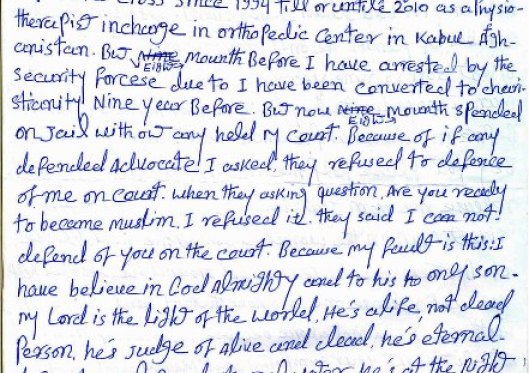 Cross since 1994 till or untile 2010 as a Physio-
therapist incharge in orthopedic Center in Kabul Afgh-
anistan. But Nine Eight mounth Before I have arrested by the
security forcese due to I have been converted to chori-
stianity Nine year Before. But now Nine Eight mounth spended
on Jail without any held my court. Because of if any
defended advocate I asked, they refused to defence
of me on court. when they asking question, Are you ready
to became muslim, I refused it. they said I can not
defend of you on the court. Because my fault is this: I
have believe in God Almighty and to his to only son.
my Lord is the light of the world, He's alife, not dead
Person, he's Judge of Alive and dead, he's eternal.
he's at the right